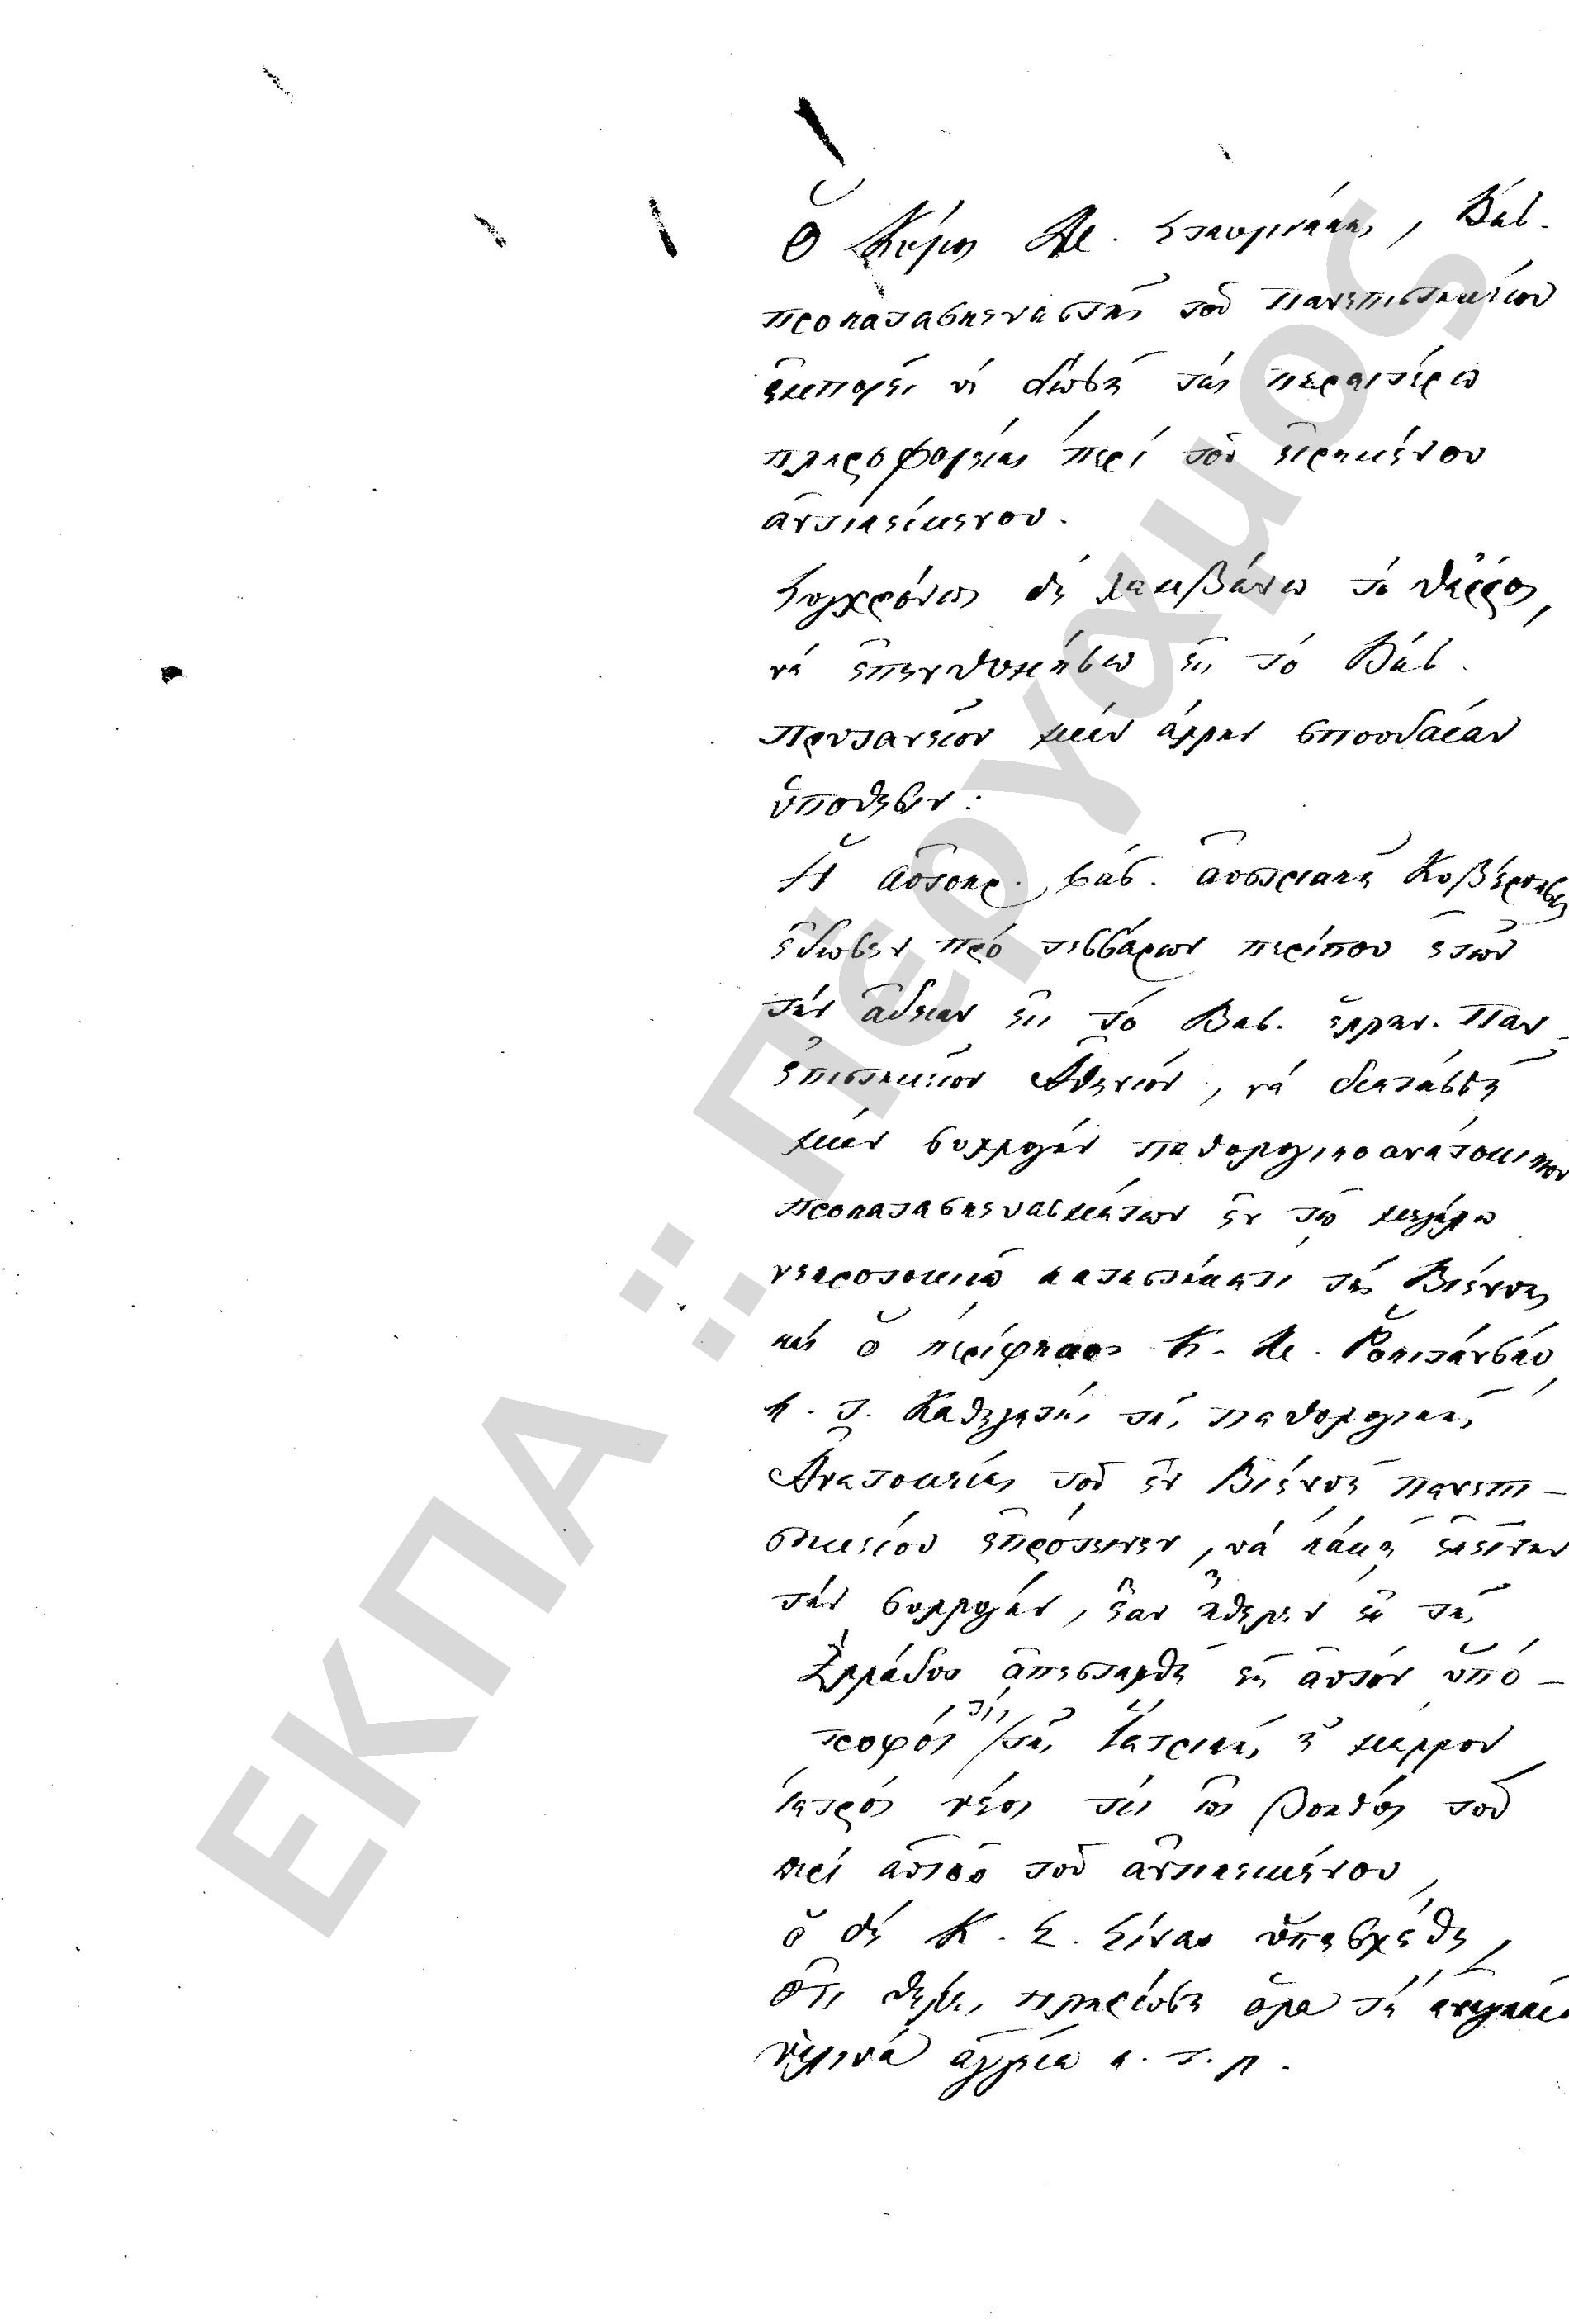 Ὁ Κύριος Δε. Σταυρινάκης, Βασ.
προπαρασκευαστὴς τοῦ Πανεπιστημείου
ἐμπορεῖ νὰ δώσῃ τὰς περαιτέρω
πληροφορείας περὶ τοῦ εἰρημένου
ἀντικειμένου.
Συγχρόνως δὲ λαμβάνω τὸ θάῤῥος,
νὰ ἐπενθυμήσω εἰς τὸ Βασ.
Πρυτανεῖον μίαν ἄλλην σπουδαίαν
ὑπόθεσιν:
Ἡ αὐτοκρ. βασ. αὐστριακὴ Κυβέρνησις
ἔδωσεν πρὸ τεσσάρων περίπου ἐτῶν
τὴν ἄδειαν εἰς τὸ Βασ. ἑλλην. Παν
επιστημεῖον Ἀθηνῶν, νὰ διατάσσῃ
μίαν συλλογὴν παθολογικοανατομικων
προκατασκευασμάτων ἐν τῷ μεγάλῳ
νεκροτομικῷ καταστήματι τῆς Βιέννης
καὶ ὁ περίφημος Κ. Κε. Ῥοκιτάνσκυ,
κ. τ. Καθηγητὴς τῆς παθολογικῆς
Ἀνατομείας τοῦ ἐν Βιέννῃ πανεπι-
στημείου ἐπρότεινεν, νὰ κάμῃ ἐκείνην
τὴν συλλογὴν, ἐὰν ἤθελεν ἐκ τῆς
Ἑλλάδος ἀπεσταλθῆ εἰς αὐτὸν ὑπό-
τροφός τις τῆς Ἰατρικῆς ἢ μᾶλλον
ἰατρὸς νέος τις ὡς βοηθὸς του
περὶ αὐτοῦ τοῦ ἀντικειμένου,
ὁ δὲ Κ. Σ. Σίνας ὑπεσχέθη,
ὅτι θέλει πληρώσῃ ὅλα τὰ ἀναγκαῖα
ὑέλινα ἀγγεῖα κ. τ. λ.
ΕΚΠΑ :: Πέργαμος